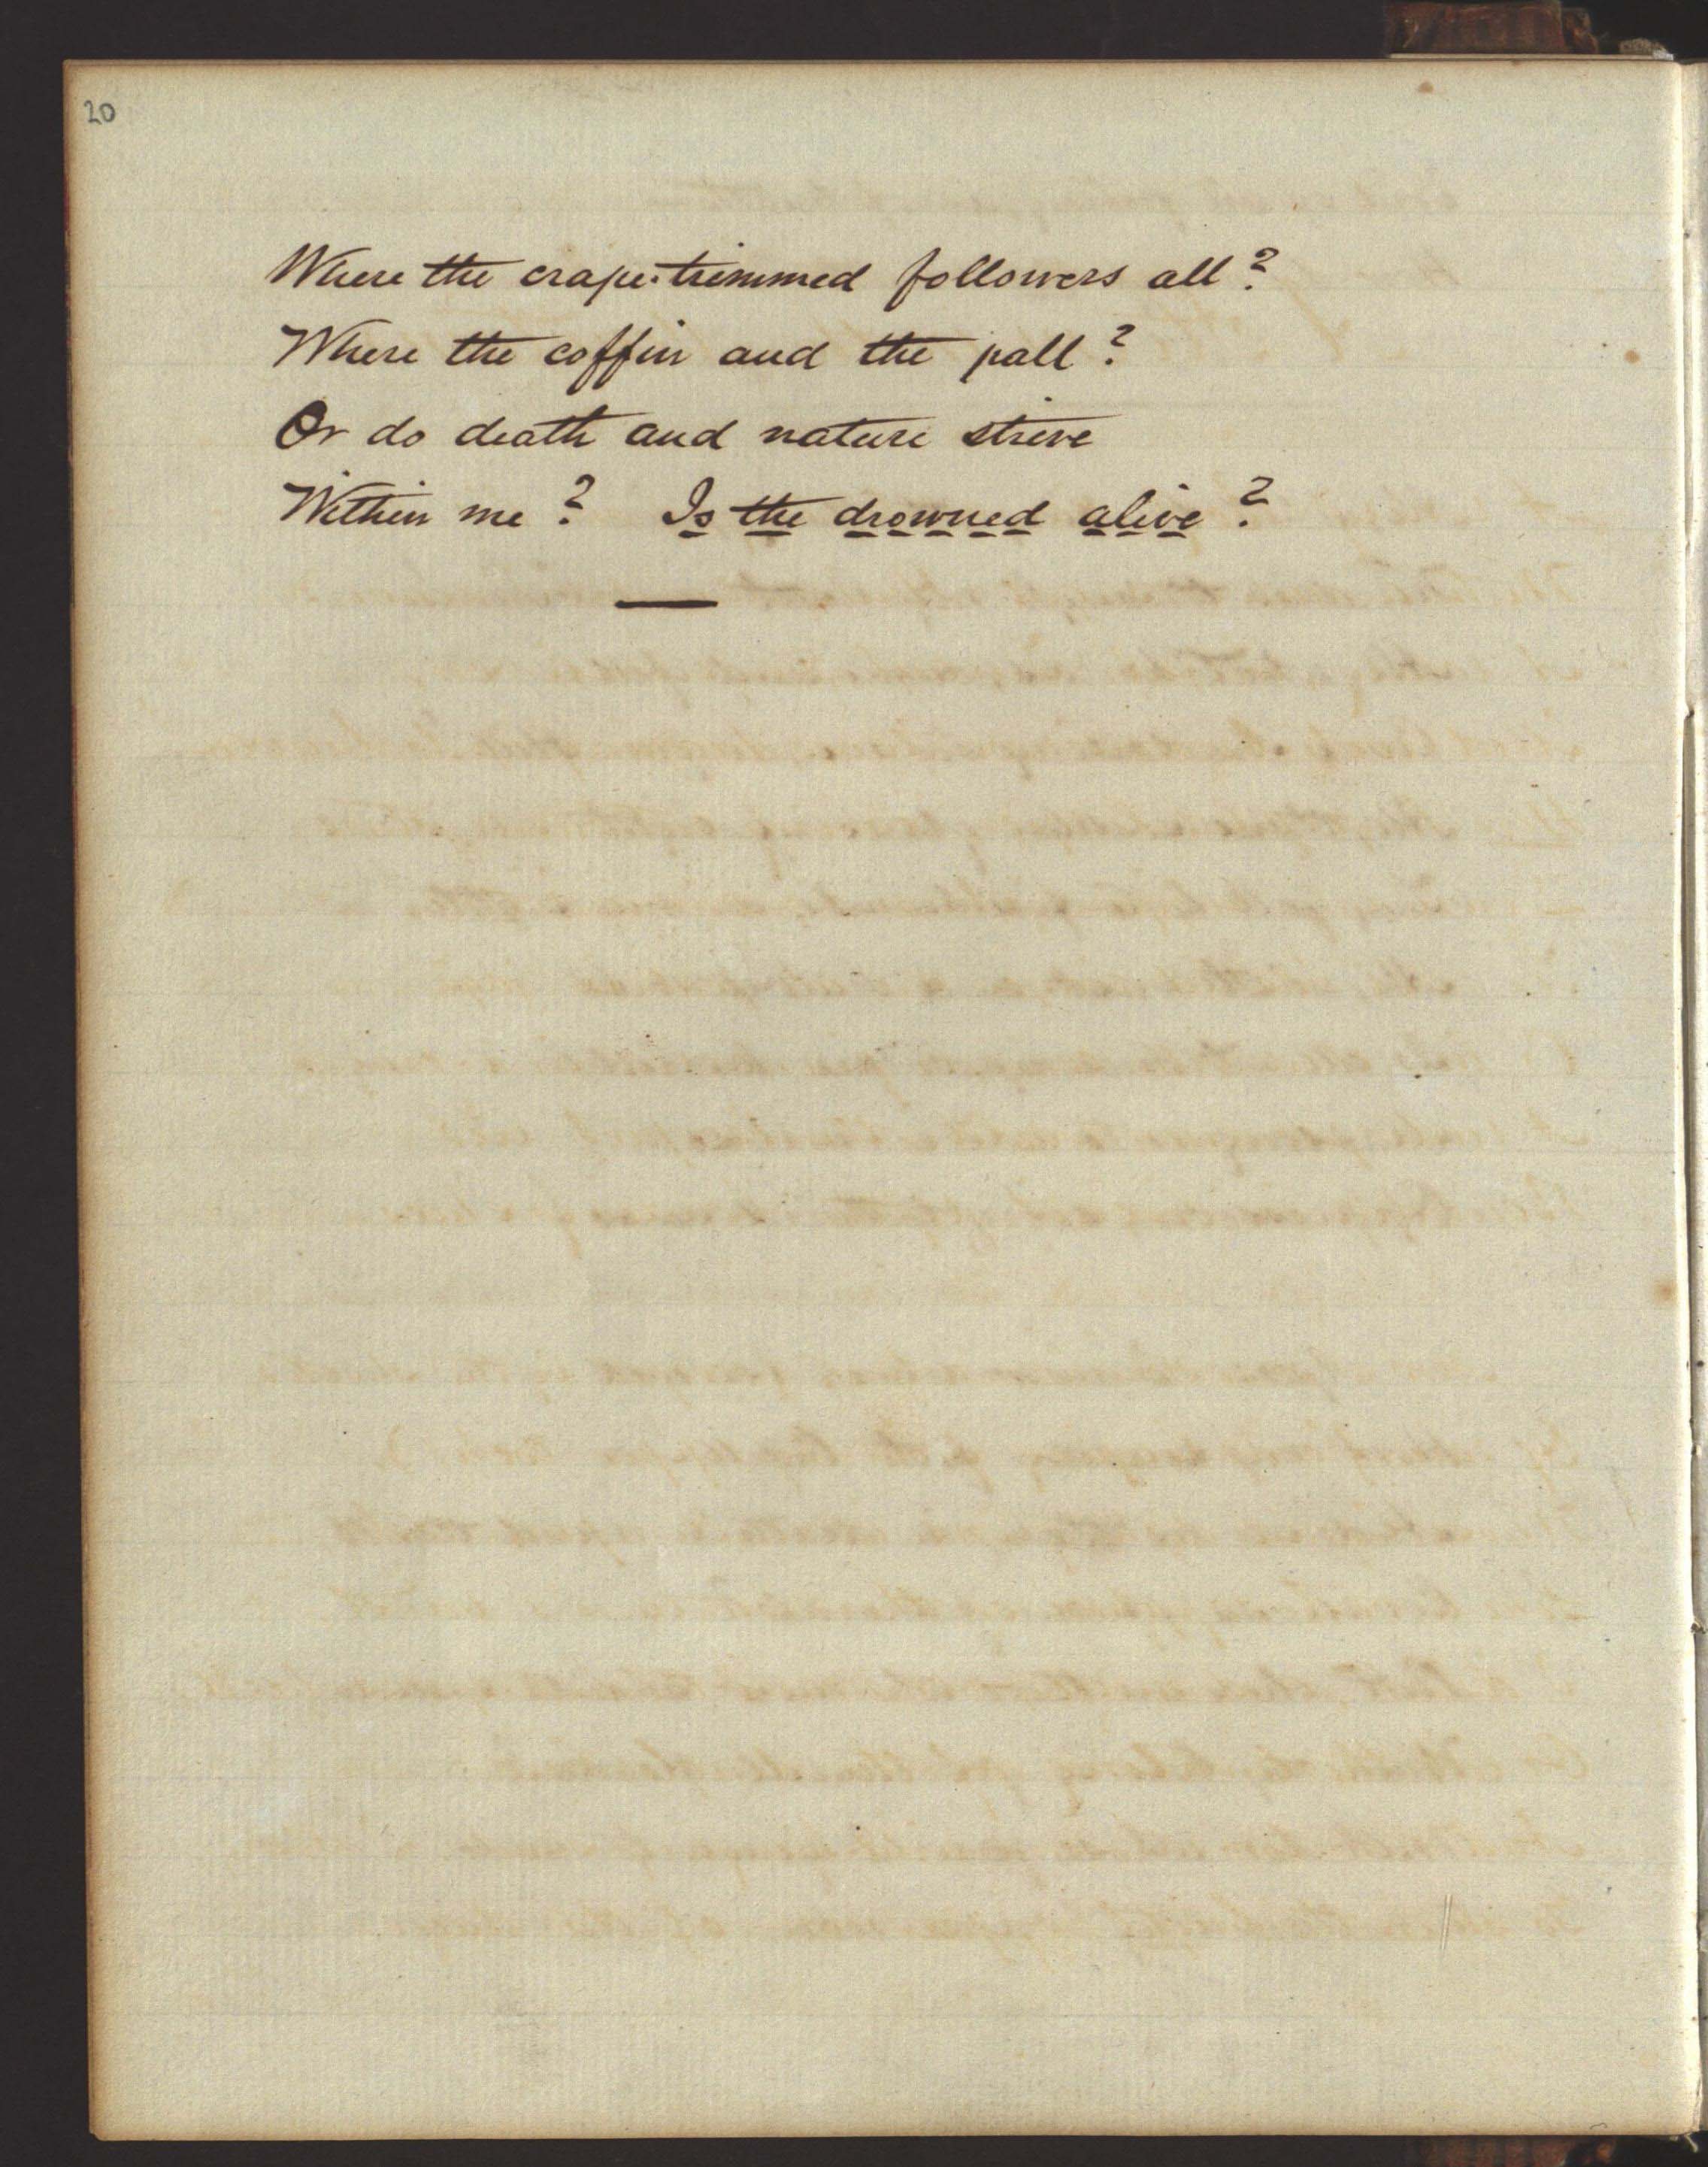 20
Where the crape-trimmed followers all?
Where the coffin and the pall?
Or do death and nature strive
Within me? Is the drowned alive?